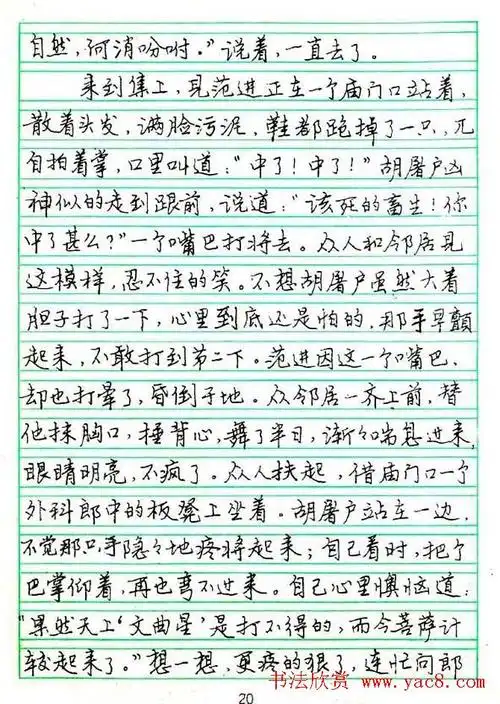 自然，何消吩咐。”说着，一直去了。
来到集上，见范进正在一个庙门口站着，
散着头发，满脸污泥，鞋都跑掉了一只，兀
自拍着掌，口里叫道：“中了！中了！”胡屠户凶
神似的走到跟前，说道：“该死的畜生！你
中了甚么？”一个嘴巴打将去。众人和邻居见
这模样，忍不住的笑。不想胡屠户虽然大着
胆子打了一下，心里到底还是怕的，那手早颤
起来，不敢打到第二下。范进因这一个嘴巴，
却也打晕了，昏倒于地。众邻居一齐上前，替
他抹胸口，捶背心，舞了半日，渐々喘息进来，
眼睛明亮，不疯了。众人扶起，借庙门口一个
外科郎中的板凳上坐着。胡屠户站在一边，
不觉那只手隐々地疼将起来；自己看时，把个
巴掌仰着，再也弯不过来。自己心里懊恼道：
“果然天上‘文曲星’是打不得的，而今菩萨计
较起来了。”想一想，更疼的狠了，连忙向郎
20
书法欣赏 www.yac8.com